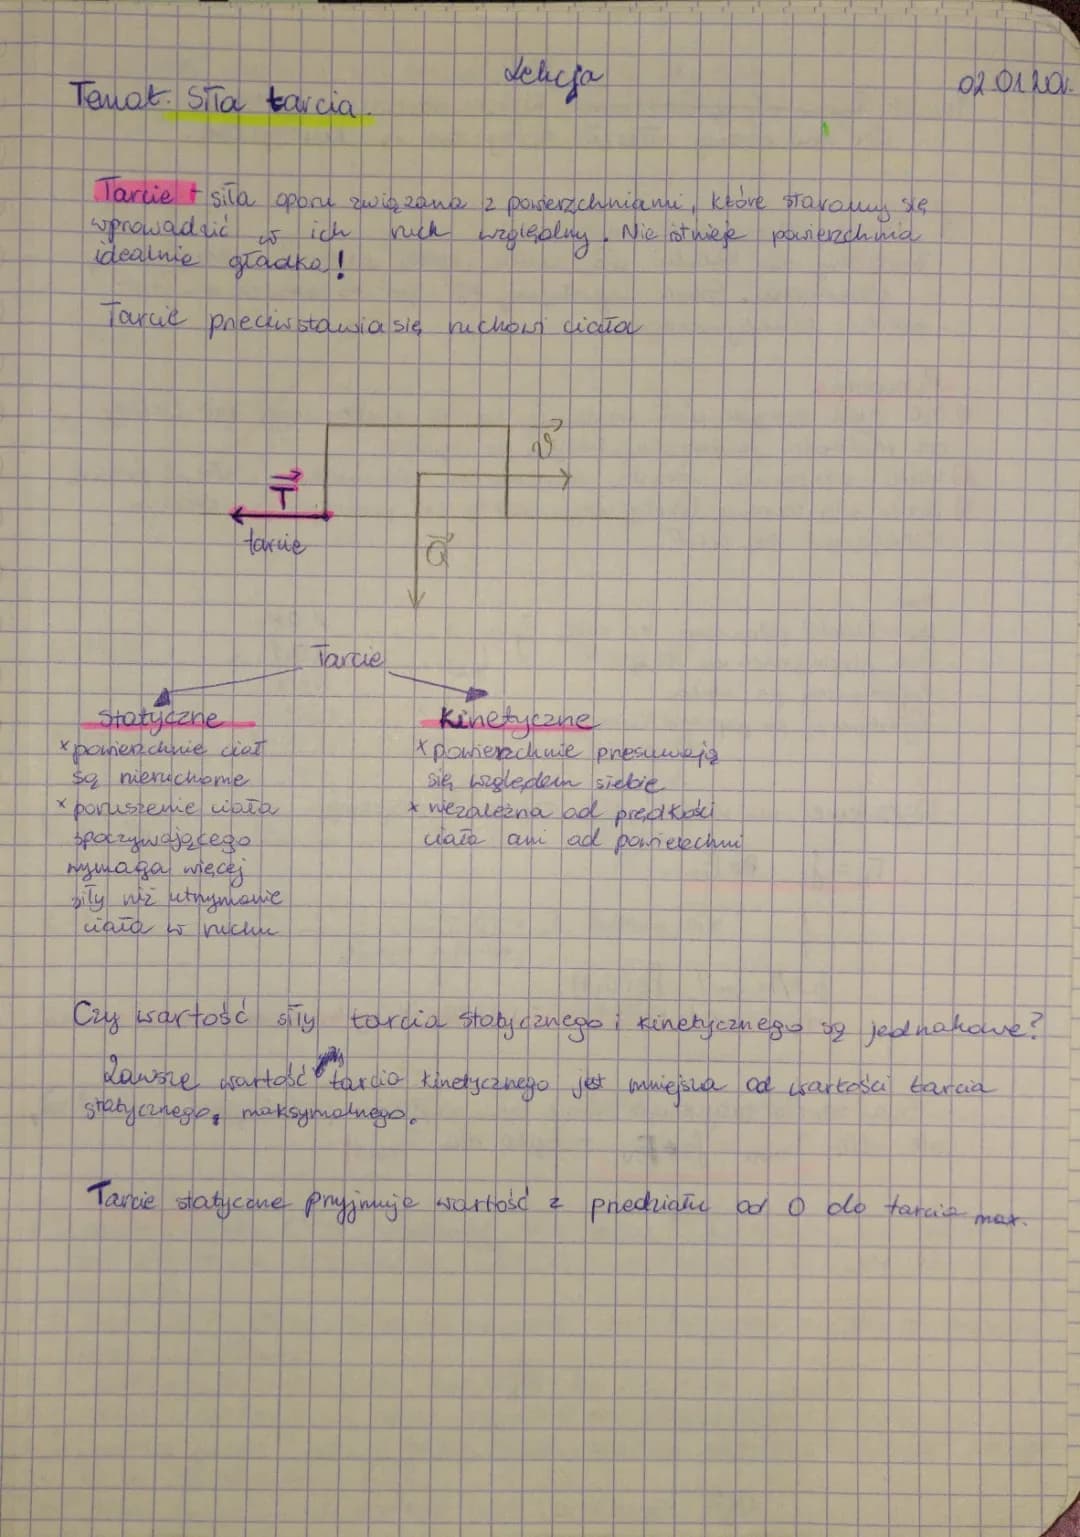 Lekcja
02.01.20r.
Temat. Siła tarcia.
Tarcie - siła oporu związana z powierzchniami, które staramy się
wprowadzić w ich ruch względny. Nie istnieje powierzchnia
idealnie gładka!
Tarcie przeciwstawia się ruchowi ciała
v
T
tarcie
Q
Tarcie
Statyczne
x powierzchnie ciał
są nieruchome
x poruszenie ciała
spoczywającego
wymaga więcej
siły niż utrzymanie
ciała w ruchu
Kinetyczne
x powierzchnie przesuwają
się względem siebie
x niezależna od prędkości
ciała ani od powierzchni
Czy wartość siły tarcia statycznego i kinetycznego są jednakowe?
Zawsze wartość tarcia kinetycznego jest mniejsza od wartości tarcia
statycznego, maksymalnego.
Tarcie statyczne przyjmuje wartość z przedziału od 0 do tarcia max.